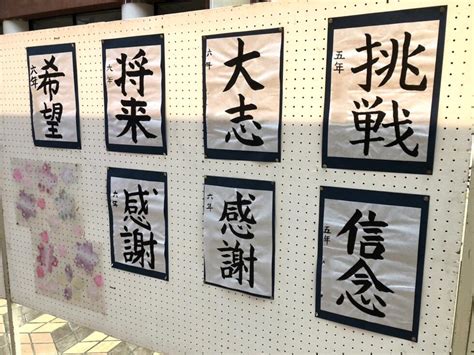 希望
六年
将来
六年
大志
六年
挑戦
五年
感謝
六年
感謝
六年
信念
五年